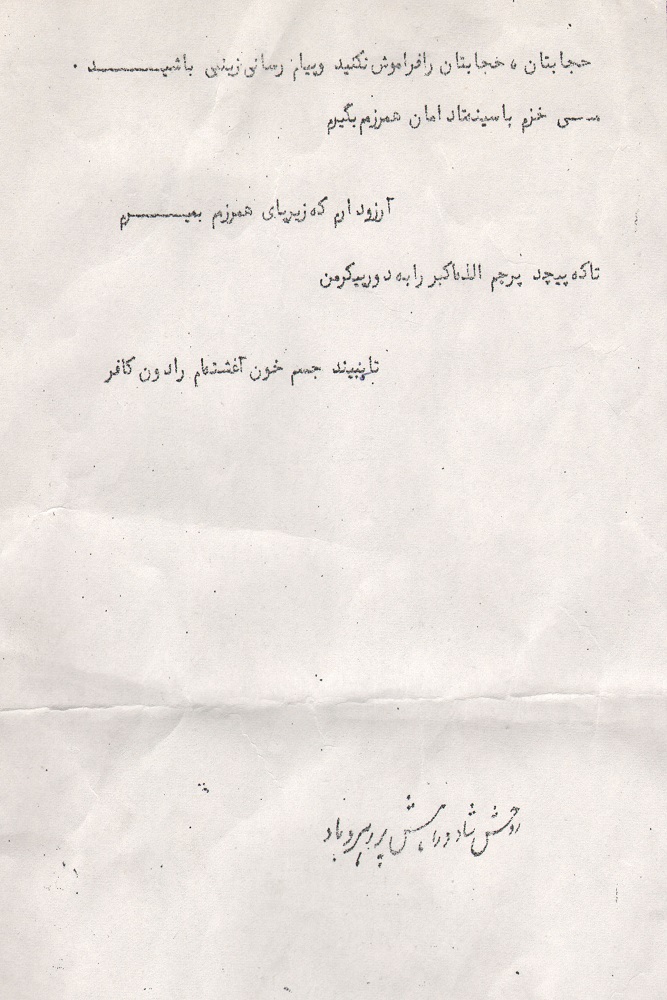 حجابتان ، حجابتان را فراموش نکنید وپیام رسانی زینبی باشیـــــد .
می خزم با سینه تا دامان همرزم بگیرم
آرزو دارم که زیر پای همرزم بمیـــــرم
تا که پیچد پرچم الله اکبر را به دور پیکر من
تا نبیند جسم خون آغشته ام را دون کافر
روحش شاد و راهش پر رهرو باد